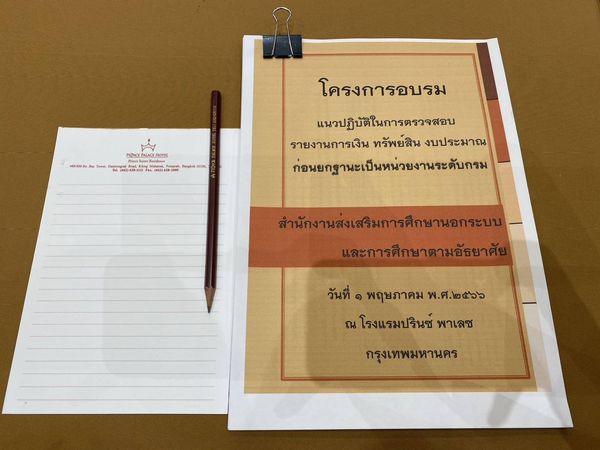 PRINCE PALACE HOTEL
Tel.
Fax.
โครงการอบรม
แนวปฏิบัติในการตรวจสอบ
รายงานการเงิน ทรัพย์สิน งบประมาณ
ก่อนยกฐานะเป็นหน่วยงานระดับกรม
สำนักงานส่งเสริมการศึกษานอกระบบ
และการศึกษาตามอัธยาศัย
วันที่ ๑ พฤษภาคม พ.ศ.๒๕๖๖
ณ โรงแรมปรินซ์ พาเลซ
กรุงเทพมหานคร